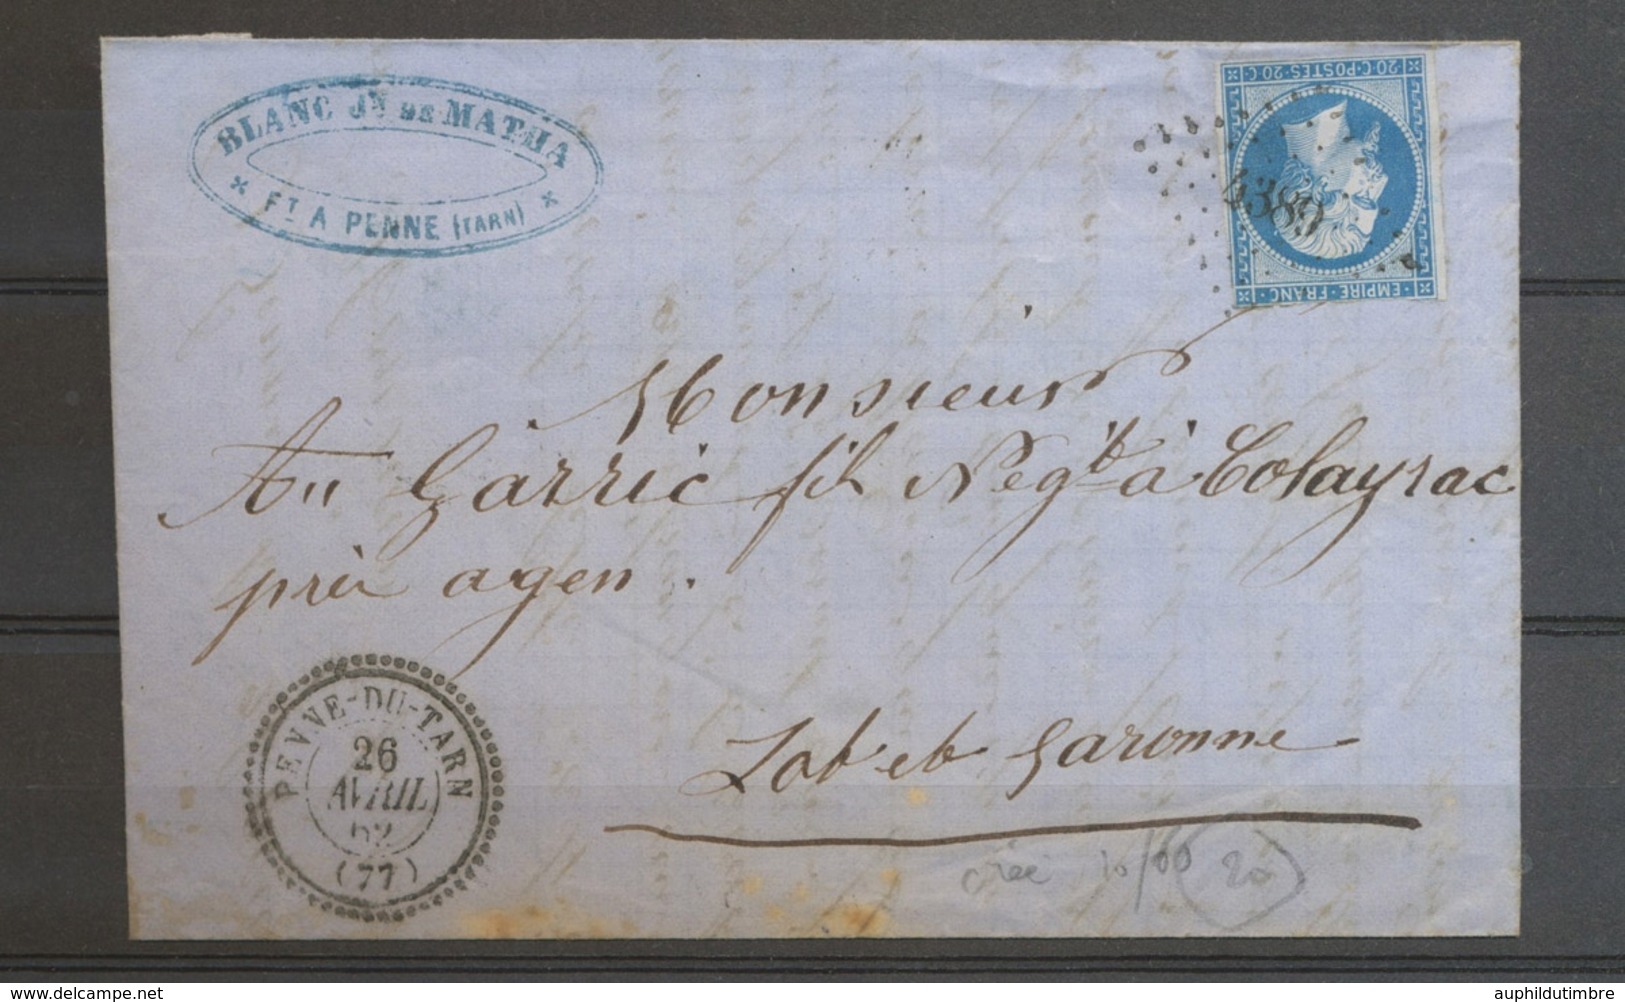 BLANC JN DE MATHA
FT A PENNE (TARN)
20 C. POSTES. 20 C
EMPIRE. FRANC.
4389
Monsieur
Au Garric fils Negt à Colayrac
près agen.
Lot et Garonne
PENNE-DU-TARN
26
AVRIL
62
(77)
créé 10/60 20
auphildutimbre
auphildutimbre.com